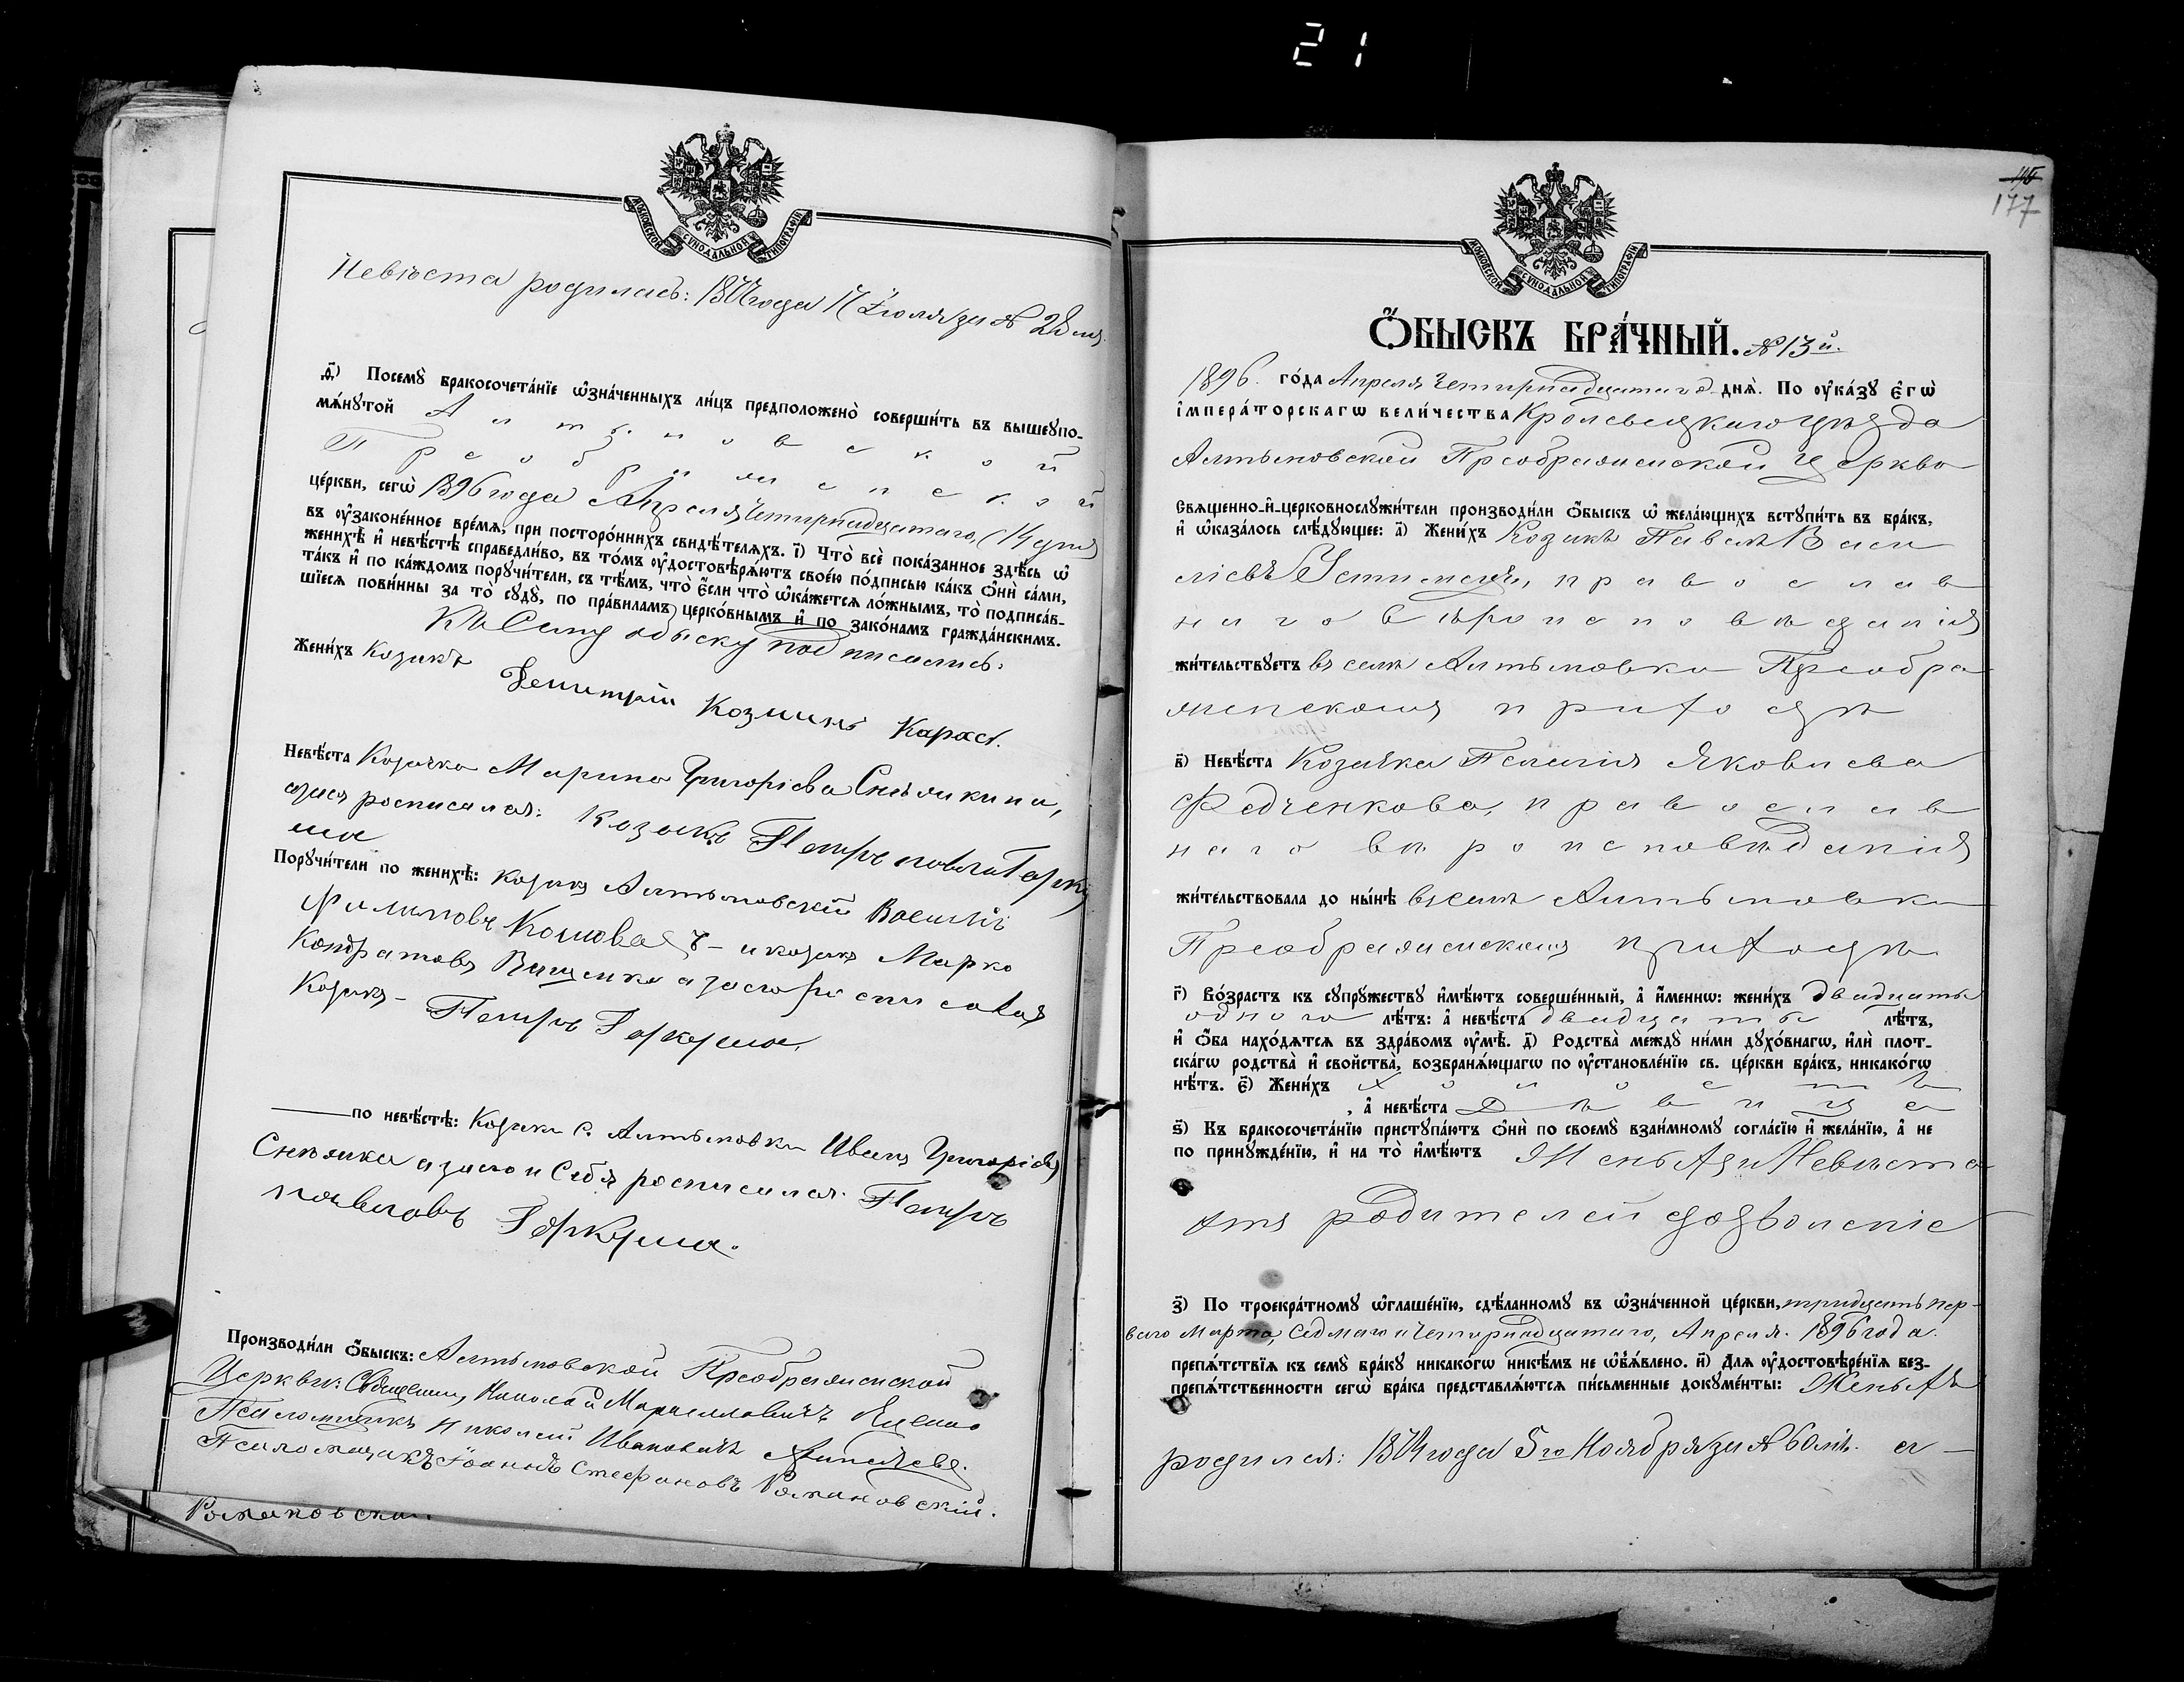 21
МОСКОВСКОЙ СѴНОДАЛЬНОЙ ТИПОГРАФІИ
Невѣста родилась: года 17 Іюля за № 28 мъ.
д҃) Посемꙋ̀ бракосочета́нїе ѡ҆зна́ченныхъ ли́цъ предположено̀ соверши́ть въ вышеꙋпо-
мѧ́нꙋтой Алтыновской
Преображенской
це́ркви, сегѡ̀ 1896 года Апреля Четырнадцатаго, (14 дня
въ ᲂу҆законе́нное вре́мѧ, при посторо́ннихъ свидѣ́телѧхъ. і҃) Что̀ всѐ пока́занное здѣ́сь ѡ҆
женихѣ̀ и҆ невѣ́стѣ справедли́во, въ то́мъ ᲂу҆достовѣрѧ́ютъ свое́ю по́дписью ка́къ ѻ҆нѝ са́ми,
та́къ и҆ по ка́ждомъ порꙋчи́тели, съ тѣ́мъ, что̀ є҆́сли что̀ ѡ҆ка́жетсѧ ло́жнымъ, то̀ подписа́в-
шїесѧ пови́нны за то̀ сꙋдꙋ̀, по пра́виламъ церко́внымъ и҆ по зако́намъ гражда́нскимъ.
Къ Сему обыску подписались:
Жени́хъ Козакъ Демитрій Козминъ Караст.
Невѣ́ста Козачка Марина Григоріева Снѣжкина,
а за нея росписался: Козакъ Петръ Павловъ Гарку
ша
Порꙋчи́тели по женихѣ̀: Козакъ Алтыновскій Василій
Филиповъ Кошовая - и козакъ Марко
Кондратовъ Ващенко а за его росписался
Козакъ - Петръ Гаркуша.
по невѣ́стѣ: Козаки с. Алтыновки Иванъ Григоріевъ
Снѣжка а за его и Себя росписался Петръ
Павловъ Гаркуша.
Производи́ли ѻ҆́быскъ: Алтыновской Преображенской
Церкви: Священникъ Николай
Псаломщикъ Николай Ивановичъ
Псаломщикъ Іоаннъ Стефановъ Романовскій.
Романовскій.
177
МОСКОВСКОЙ СѴНОДАЛЬНОЙ ТИПОГРАФІИ
Ѻ҆́БЫСКЪ БРА́ЧНЫЙ. № 13й.
1896. го́да Апреля Четырнадцатаго днѧ̀. По ᲂу҆ка́зꙋ є҆гѡ̀
і҆мпера́торскагѡ вели́чества Кролевецкаго уѣзда
Алтыновской Преображенской Церкви
Свѧще́нно-и҆-церковнослꙋжи́тели производи́ли ѻ҆́быскъ ѡ҆ жела́ющихъ встꙋпи́ть въ бра́къ,
и҆ ѡ҆каза́лось слѣ́дꙋющее: а҃) Жени́хъ Козакъ Павелъ Васи
ліевъ Устименко, православ
наго вѣроисповѣданія
жи́тельствꙋетъ въ селѣ Алтыновки Преобра
женскомъ приходѣ
в҃) Невѣ́ста Козачка Пелагія Яковлева
Федченкова, православ
наго вѣроисповѣданія
жи́тельствовала до ны́нѣ въ селѣ Алтыновки
Преображенскомъ приходѣ
г҃) Во́зрастъ къ сꙋпрꙋ́жествꙋ и҆мѣ́ютъ соверше́нный, а҆ и҆́меннѡ: жени́хъ двадцать
одного лѣ́тъ: а҆ невѣ́ста двадцать лѣ́тъ,
и҆ ѻ҆́ба нахо́дѧтсѧ въ здра́вомъ ᲂу҆мѣ̀. д҃) Родства̀ междꙋ̀ ни́ми дꙋхо́внагѡ, и҆лѝ плот-
ска́гѡ родства̀ и҆ сво́йства, возбранѧ́ющагѡ по ᲂу҆становле́нїю св. це́ркви бра́къ, никако́гѡ
нѣ́тъ. є҃) Жени́хъ Холостъ
, а҆ невѣ́ста Дѣвица
ѕ҃) Къ бракосочета́нїю пристꙋпа́ютъ ѻ҆нѝ по своемꙋ̀ взаи́мномꙋ согла́сїю и҆ жела́нїю, а҆ не
по принꙋжде́нїю, и҆ на то̀ и҆мѣ́ютъ Женихъ и Невѣста
отъ родителей дозволеніе
з҃) По троекра́тномꙋ ѡ҆глаше́нїю, сдѣ́ланномꙋ въ ѡ҆зна́ченной це́ркви, тридцать пер-
ваго Марта, Седмаго и Четырнадцатаго, Апреля. 1896 года.
препѧ́тствїѧ къ семꙋ̀ бра́кꙋ никако́гѡ никѣ́мъ не ѡ҆б̾ѧ́влено. и҃) Длѧ ᲂу҆достовѣре́нїѧ без-
препѧ́тственности сегѡ̀ бра́ка представлѧ́ютсѧ пи́сьменные докꙋме́нты: Женихъ
родился: 1874 года 5го Ноября за № 60мъ. а -